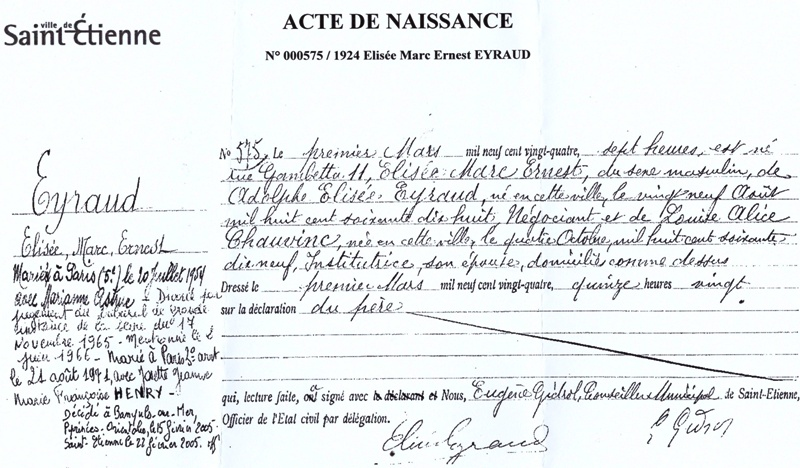 ville de
Saint-Étienne
ACTE DE NAISSANCE
N° 000575 / 1924 Elisée Marc Ernest EYRAUD
Eyraud
Elisée, Marc, Ernest
Marié à Paris (5e) le 10 Juillet 1954
avec Marianne - Divorcé par
jugement du tribunal de grande
instance de la Seine du 17
Novembre 1965 - Mentionné le 2
juin 1966 - Marié à Paris 20e arrt
le 21 août 1971, avec Josette Jeanne
Marie Françoise HENRY -
Décédé à Banyuls-sur-Mer,
Pyrénées-Orientales, le 15 février 2005.
Saint-Etienne le 22 février 2005.
No 575, Le premier Mars mil neuf cent vingt-quatre, sept heures, est né
rue Gambetta 11, Elisée Marc Ernest, du sexe masculin, de
Adolphe Elisée Eyraud, né en cette ville, le vingt neuf Août
mil huit cent soixante dix huit, Négociant et de Louise Alice
Chauvinc, née en cette ville, le quatre Octobre, mil huit cent soixante
dix neuf, Institutrice, son épouse, domiciliés comme dessus
Dressé le premier Mars mil neuf cent vingt-quatre, quinze heures vingt
sur la déclaration du père
qui, lecture faite, a signé avec le déclarant et Nous, Eugène Gidrol, Conseiller Municipal de Saint-Etienne,
Officier de l'Etat civil par délégation.
Elisée Eyraud
E Gidrol